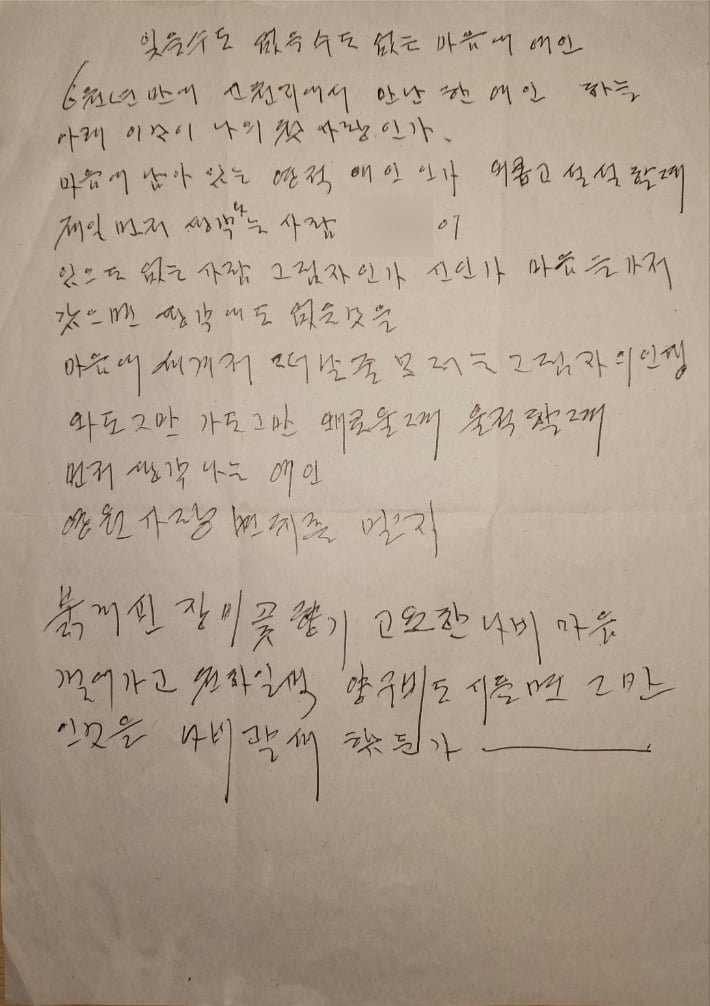 잊을수도 없을수도 없는 마음에 애인
6천년만에 신천지에서 만난 한 애인 하늘
아래 이것이 나의 첫 사랑인가.
마음에 남아 있는 영적 애인 인가 외롭고 설설할때
제일 먼저 생각나는 사람 이
있으도 없는 사람 그림자인가 신인가 마음을 가저
갔으면 생각에도 없을것을
마음에 세겨저 떠날줄 모르는 그림자의 인생
와도 그만 가도 그만 왜로울때 울적할때
먼저 생각나는 애인
영원 사랑 변데줄
붉게핀 장미꽃 향기 고요한 나비 마음
걸어가고 천하일색 양구비도 시들면 그만
인것을 나비 했든가